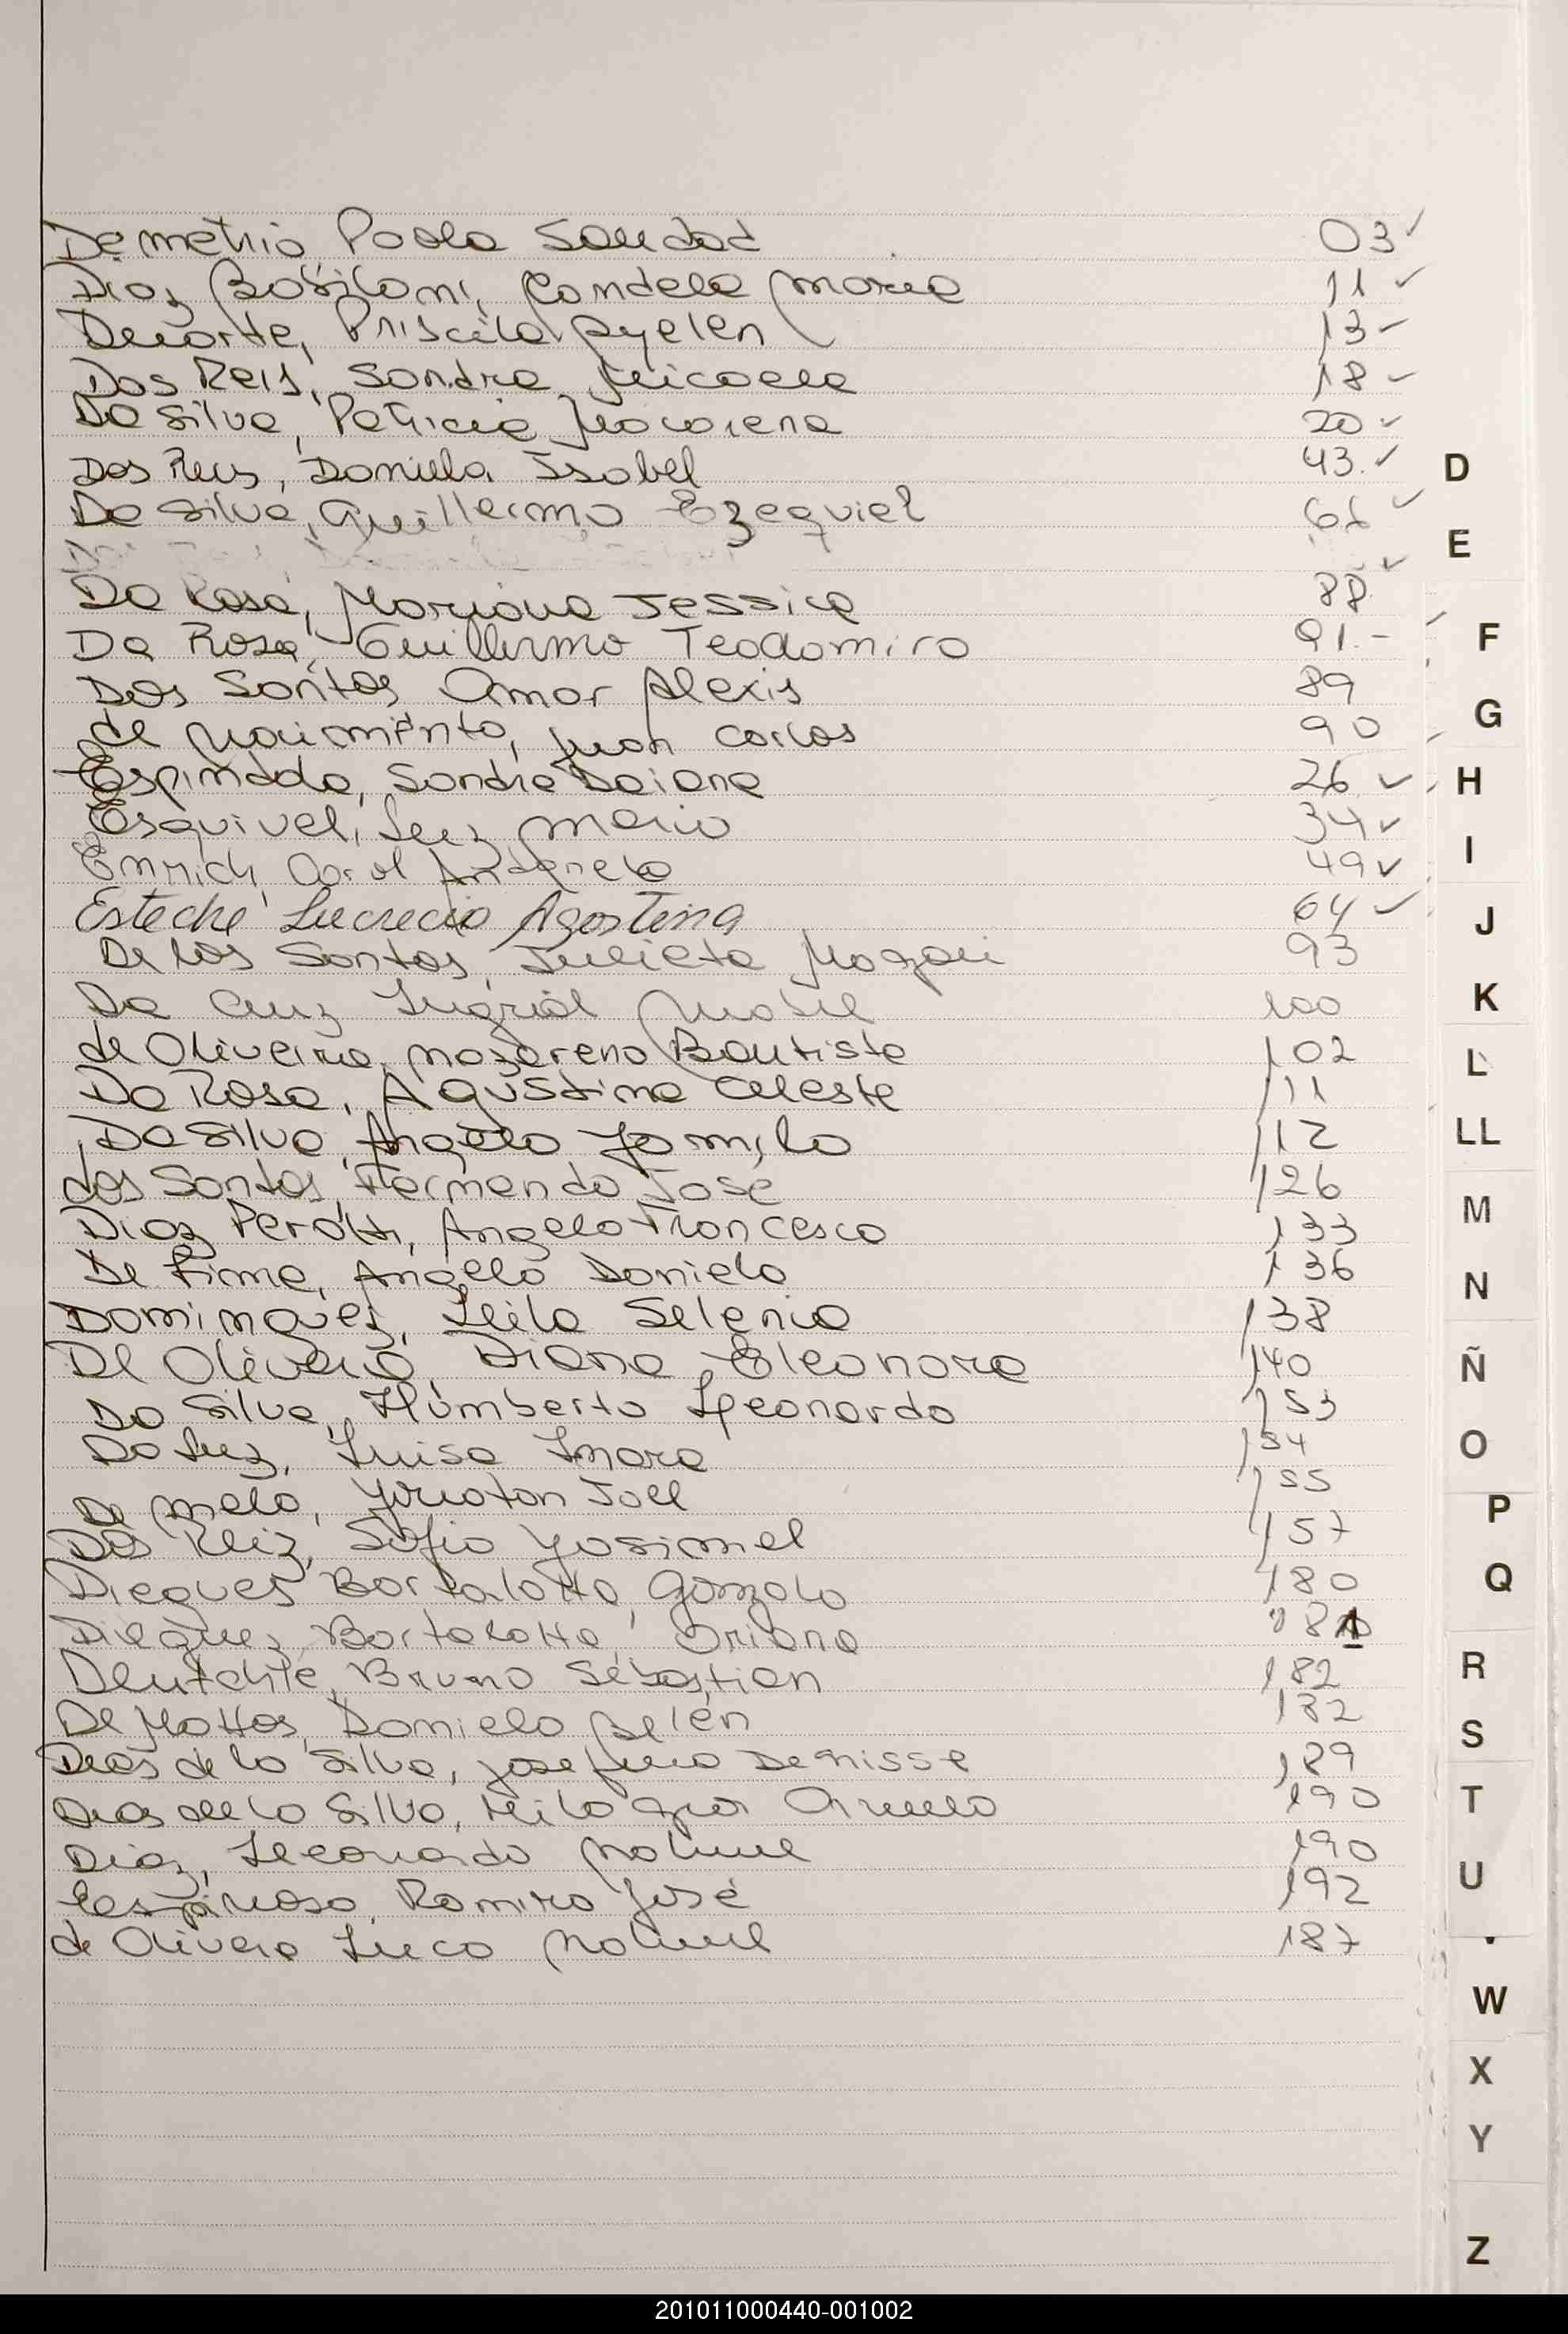 Demetrio, Paola Soledad 03 ✓
Diaz Basiloni, Candela Maria 11 ✓
Duarte, Priscila Ayelen 13 -
Dos Reis, Sandra Micaela 18 -
Da Silva, Patricia Macarena 20 ✓
Dos Reis, Daniela Isabel 43. ✓
D
Da Silva, Guillermo Ezequiel 66 ✓
E
Da Rosa, Mariana Jessica 88 ✓
Da Rosa, Guillermo Teodomiro 91.-
F
Dos Santos Amor Alexis 89
G
de Nacimiento, Juan Carlos 90
Espindola, Sandra Daiana 26 ✓
H
Esquivel, Luz Maria 34 ✓
Emrich, Carol 49 ✓
I
Esteche Lucrecia Agostina 64 ✓
J
De los Santos, Julieta Magali 93
Da Cruz Ingrid Mabel 100
K
de Oliveira, Nazareno Bautista 102
L
Da Rosa, Agustina Celeste 111
Da Silva, Angela Yamila 112
LL
dos Santos, Fernando José 126
M
Diaz Perotti, Angelo Francesco 133
De Lima, Angela Daniela 136
N
Dominguez, Leila Selenia 138
De Olivera, Diana Eleonora 140
Ñ
Da Silva, Humberto Leonardo 153
Da Luz, Luisa Inara 154
O
De Melo, Joel 155
P
Dos Reiz, Sofia Yosimel 157
Dieguez Bortolotto, Gonzalo 180
Q
Dieguez Bortolotto, Oriana 181
R
Deutchle, Bruno Sebastian 182
De Mattos, Daniela Belén 182
S
Dias de la Silva, Josefina Denisse 189
T
Dias de la Silva, 190
Diaz, Leonardo Nahuel 190
U
Espinoso, Ramiro José 192
de Olivera Luca Nahuel 187
W
X
Y
Z
201011000440-001002